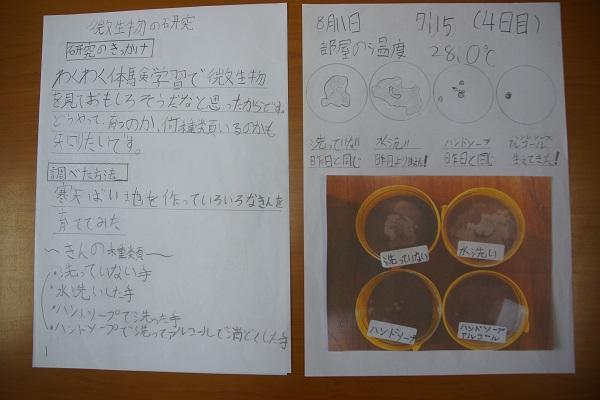 微生物の研究
研究のきっかけ
わくわく体験学習で微生物
を見ておもしろそうだなと思ったからです。
どうやって、育つのか、何種類いるのかも
知りたいです。
調べた方法
寒天ばい地を作っていろいろなきんを
育ててみた
〜きんの種類〜
・洗っていない手
・水洗いした手
・ハンドソープで洗った手
・ハンドソープで洗ってアルコールで消どくした手
1
8月11日 7:15 (4日目)
部屋の温度 28.0℃
洗っていない 水洗い ハンドソープ ハンドソープアルコール
昨日と同じ 昨日より 昨日と同じ 生えてきた!
洗っていない
水洗い
ハンドソープ
ハンドソープ
アルコール